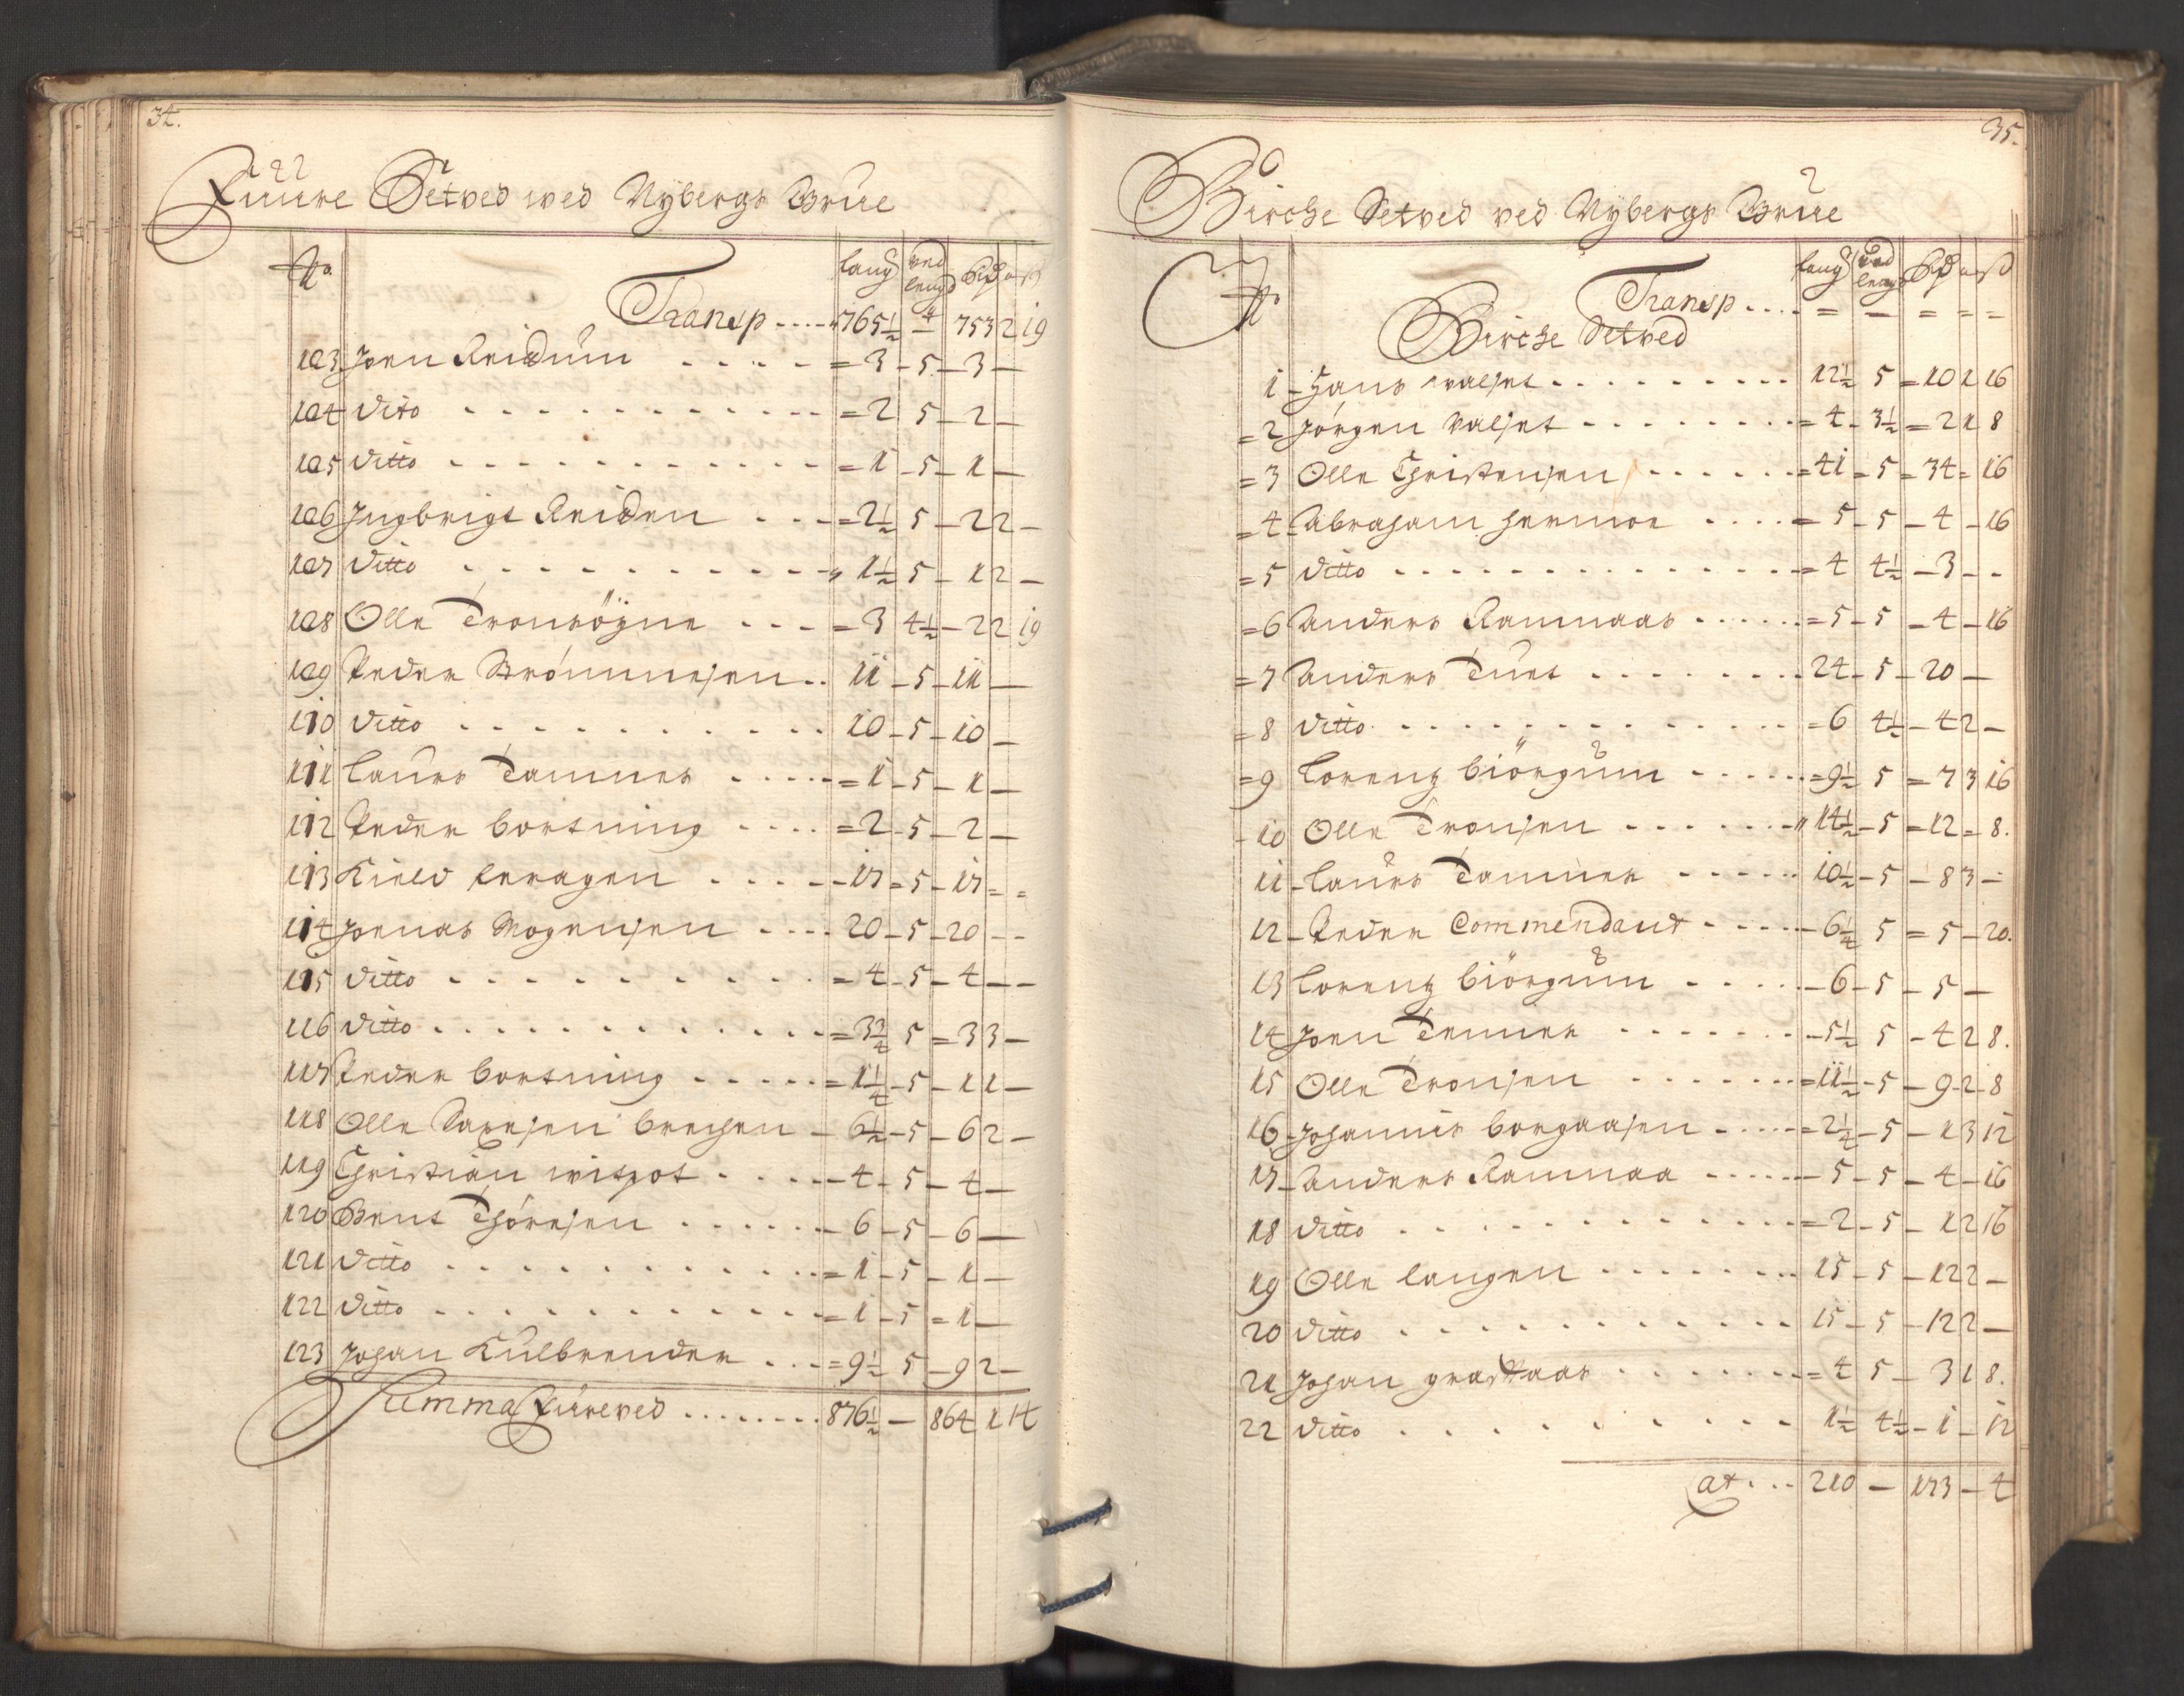 34.
Fuure Setved wed Nÿbergs Grue
No. laug ved lengd
Transp .... 765½ 4 753 2 19
103 Joen Reidum .... = 3 - 5 - 3 -
104 dito .... = 2 5 - 2 -
105 ditto .... = 1 - 5 - 1 -
106 Ingbrigt Reiden ... = 2½ 5 - 2 2 -
107 ditto .... 1½ 5 - 1 2 -
108 Olle Tronsögne ... = 3 4½ - 2 2 19
109 Peder Strömmesen .. 11 - 5 - 11 -
110 ditto .... 10 - 5 - 10 -
111 Laurs Tamnes .... = 1 - 5 - 1 -
112 Peder bortning .... = 2 - 5 - 2 -
113 Kield leragen .... - 17 = 5 - 17 = =
114 Joenas Mogensen .... 20 - 5 - 20 - -
115 ditto .... = 4 - 5 - 4 - -
116 ditto .... = 3¾ 5 = 3 3 -
117 Peder bortning .... = 1¼ - 5 - 1 1 -
118 Olle Larssen brechen - 6½ - 5 - 6 2 -
119 Christian witzot .... - 4 - 5 - 4 -
120 Bent Thöresen ..... - 6 - 5 - 6 -
121 ditto .... = 1 - 5 - 1 -
122 ditto .... = 1 - 5 = 1 -
123 Johan Kulbrender ... = 9½ 5 - 9 2 -
Summa Fureved ........ 876½ - 864 1 14
35.
Birche Setved ved Nÿbergs Grue
No laug ved lengd
Transp .... = - = = =
Birche Setved
1 - Hans walset .... 12½ 5 = 10 1 16
= 2 Jörgen Valset .... = 4 - 3½ = 2 1 8
= 3 Olle Christensen .... = 41 = 5 = 34 = 16
= 4 - Abraham hermoe .... = 5 - 5 - 4 - 16
= 5 ditto .... = 4 4½ - 3 - -
= 6 Anders Ramaas .... = 5 - 5 - 4 - 16
= 7 Anders Turs .... 24 - 5 - 20 -
= 8 ditto .... = 6 4½ - 4 2 -
= 9 Lorentz biörgum .... = 9½ 5 = 7 3 16
- 10 Olle Tronsen .... 14½ - 5 = 12 = 8.
11 - Laurs Tamnes .... 10½ - 5 - 8 3 -
12 - Peder Commendant .... - 6¼ 5 = 5 - 20.
13 Lorentz biörgum .... - 6 - 5 - 5 -
14 Joen Temner .... - 5½ 5 - 4 2 8.
15 Olle Tronsen .... = 11½ - 5 - 9 - 2 - 8
16 - Johannis borgaasen .... = 2¼ - 5 - 1 3 12
17 - Anders Ramaa .... - 5 - 5 - 4 - 16
18 ditto .... = 2 - 5 - 1 2 16
19 Olle langen .... 15 - 5 - 12 2 -
20 ditto .... 15 - 5 - 12 2 -
21 Johan graaaas .... = 4 5 - 3 1 8.
22 ditto .... 1½ 4½ - 1 - 12
at ... 210 - 173 - 4